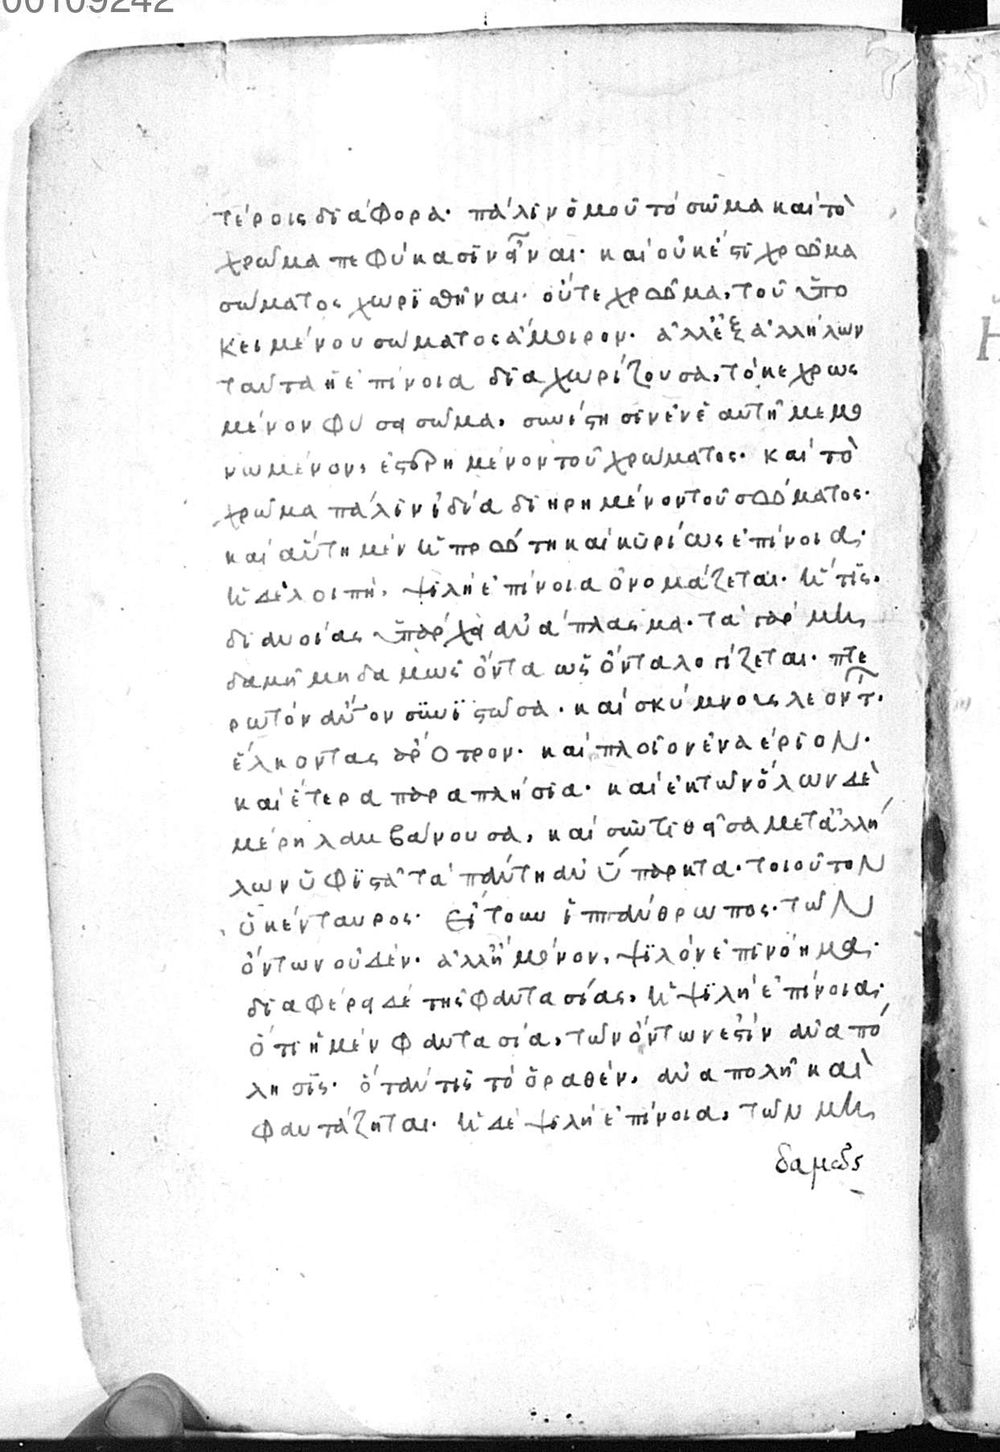 00109242
τέροις διάφορα· πάλιν ὁμοῦ τό σῶμα καί τὸ
χρῶμα πεφύκασιν εἶναι· καί οὐκέτι χρῶμα
σώματος χωρϊσθῆναι· οὔτε χρῶμα, τοῦ ὑπο
κειμένου σώματος ἄμοιρον· ἀλλ' ἐξ ἀλλήλων
ταῦτα ἡ ἐπίνοια διαχωρίζουσα, τό κεχρωσ
μένον φύσει σῶμα, συνίστησιν ἐν ἑαυτῆ μεμο
νωμένον, ἐστερημένον τοῦ χρώματος· καί τὸ
χρῶμα πάλιν ἰδία διηρημένον τοῦ σώματος·
καί αὕτη μέν ἡ πρώτη καί κυρίως ἐπίνοια·
ἡ δέ λοιπή, ψιλή ἐπίνοια ὀνομάζεται· ἥτις,
διανοίας ὑπάρχει ἀνάπλασμα· τά γάρ μη
δαμῆ μηδαμῶς ὄντα ὡς ὄντα λογίζεται· πτε
ρωτόν ἄνον συνϊστῶσα· καί σκύμνοις λέοντ
ἕλκοντας ἄροτρον· καί πλοῖον ἐναέριον·
καί ἕτερα παραπλήσια· καί ἐκ τῶν ὅλων δὲ
μέρη λαμβάνουσα, καί συντιθεῖσα μετ' ἀλλή
λων ὑφϊστᾶ τά πάντη ἀνύπαρκτα· τοιοῦτον
ὁ κένταυρος· εἴτουν ἱππάνθρωπος· τῶν
ὄντων οὐδέν· ἀλλ' ἢ μόνον, ψϊλόν ἐπινόημα·
διαφέρει δέ τῆς φαντασίας, ἡ ψϊλή ἐπίνοια·
ὅτι ἡ μέν φαντασία, τῶν ὄντων ἐστίν ἀναπό
λησις· ὅταν τις τό ὁραθέν, ἀναπολῆ καὶ
φαντάζηται· ἡ δέ ψιλή ἐπίνοια, τῶν μη
δαμῶς